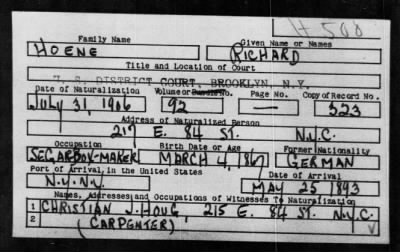 H-500
Family Name Given Name or Names
HOENE RICHARD
Title and Location of Court
U. S. DISTRICT COURT, BROOKLYN, N.Y.
Date of Naturalization Volume or Bundle No. Page No. Copy of Record No.
JULY 31, 1906 92 323
Address of Naturalized Person
217 E. 84 ST. N.Y.C.
Occupation Birth Date or Age Former Nationality
SEGARBOX-MAKER MARCH 4, 1867 GERMAN
Port of Arrival in the United States Date of Arrival
N.Y. N.Y. MAY 25 1893
Names, Addresses and Occupations of Witnesses To Naturalization
1 CHRISTIAN J. HOUG, 215 E. 84 ST. N.Y.C.
2 (CARPENTER)